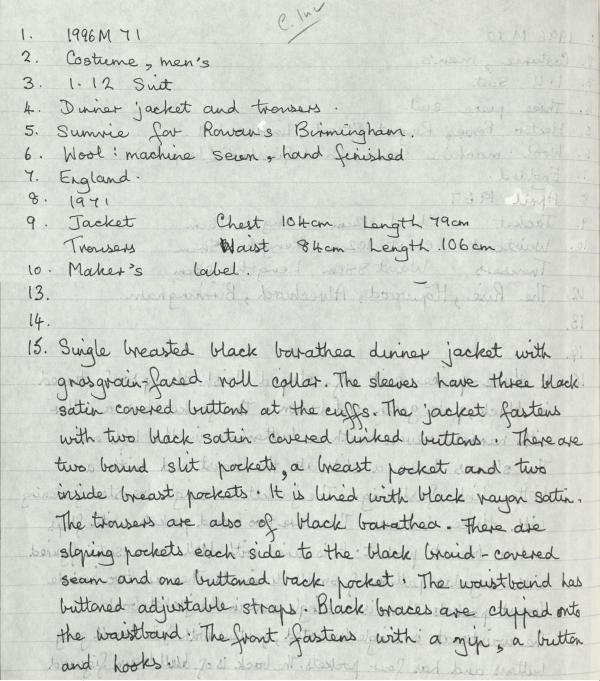 C. Inv
1. 1996M 71
2. Costume, men's
3. 1.12 Suit
4. Dinner jacket and trousers.
5. Sumrie for Rowan's Birmingham.
6. Wool: machine sewn, hand finished
7. England.
8. 1971
9. Jacket Chest 104cm Length 79cm
Trousers Waist 84cm Length 106cm
10. Maker's label.
13.
14.
15. Single breasted black barathea dinner jacket with
grosgrain-faced roll collar. The sleeves have three black
satin covered buttons at the cuffs. The jacket fastens
with two black satin covered linked buttons. There are
two bound slit pockets, a breast pocket and two
inside breast pockets. It is lined with black rayon satin.
The trousers are also of black barathea. There are
sloping pockets each side to the black braid-covered
seam and one buttoned back pocket. The waistband has
buttoned adjustable straps. Black braces are clipped onto
the waistband. The front fastens with a zip, a button
and hooks.